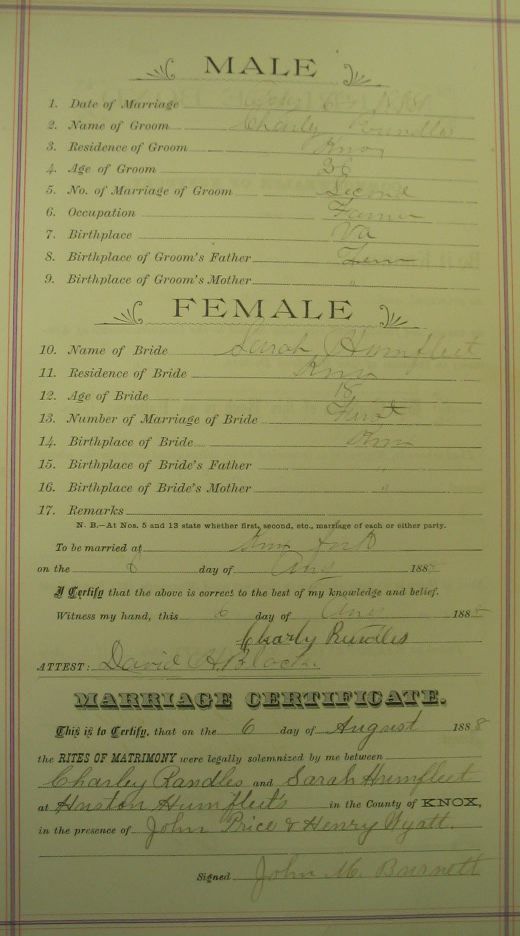 MALE
1. Date of Marriage
2. Name of Groom Charly
3. Residence of Groom Knox
4. Age of Groom
5. No. of Marriage of Groom Second
6. Occupation Farmer
7. Birthplace Va
8. Birthplace of Groom's Father
9. Birthplace of Groom's Mother "
FEMALE
10. Name of Bride Sarah Humfleet
11. Residence of Bride Knox
12. Age of Bride 15
13. Number of Marriage of Bride First
14. Birthplace of Bride Knox
15. Birthplace of Bride's Father "
16. Birthplace of Bride's Mother "
17. Remarks
N. B.—At Nos. 5 and 13 state whether first, second, etc., marriage of each or either party.
To be married at
on the 6 day of Aug 188
I Certify that the above is correct to the best of my knowledge and belief.
Witness my hand, this 6 day of Aug 188
Charly Rundles
ATTEST: David H. Black
MARRIAGE CERTIFICATE.
This is to Certify, that on the 6 day of August 1888
the RITES OF MATRIMONY were legally solemnized by me between
Charley Randles and Sarah Humfleet
at Huston Humfleet's in the County of KNOX,
in the presence of John Price & Henry Wyatt.
Signed John M. Burnett